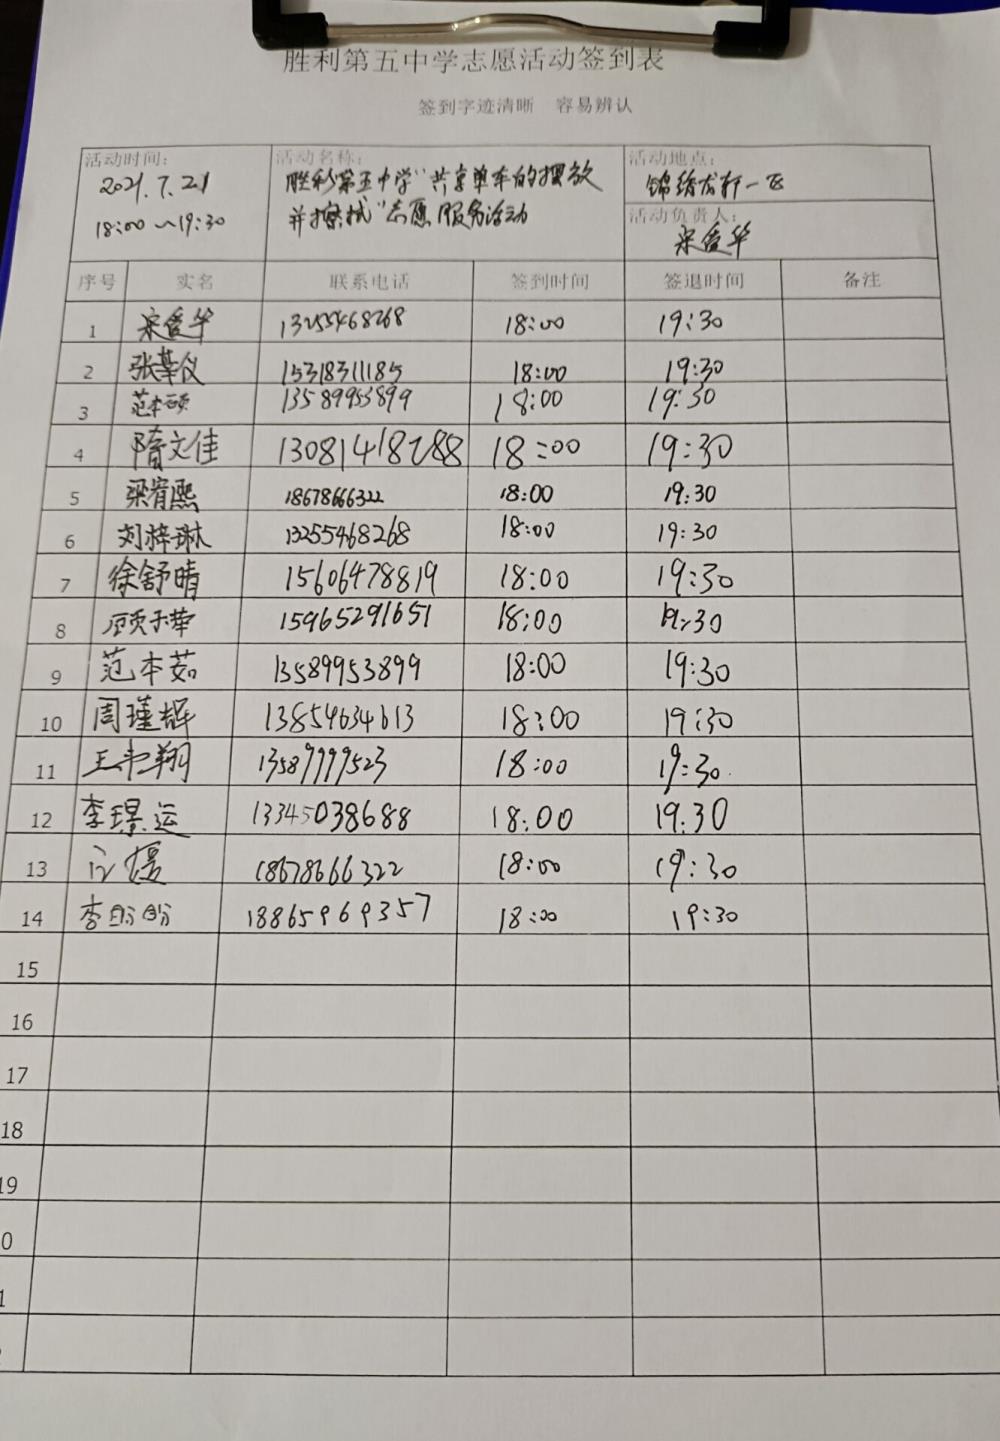 胜利第五中学志愿活动签到表
签到字迹清晰 容易辨认
活动时间: 2021.7.21
18:00~19:30
活动名称: 胜利第五中学"共享单车的摆放
并擦拭"志愿服务活动
活动地点: 锦绣龙轩一区
活动负责人: 宋爱华
序号 实名 联系电话 签到时间 签退时间 备注
1 宋爱华 13255468268 18:00 19:30
2 张莘仪 15318311185 18:00 19:30
3 范本硕 13589953899 18:00 19:30
4 隋文佳 13081418288 18:00 19:30
5 梁肯熙 18678666322 18:00 19:30
6 刘梓琳 13255468268 18:00 19:30
7 徐舒晴 15606478819 18:00 19:30
8 顾子华 15965291651 18:00 19:30
9 范本茹 13589953899 18:00 19:30
10 周瑾辉 13854634613 18:00 19:30
11 王翔 13589999523 18:00 19:30
12 李璟运 13345038688 18:00 19:30
13 媛 18678666322 18:00 19:30
14 李盼盼 18865969357 18:00 19:30
15
16
17
18
19
0
1